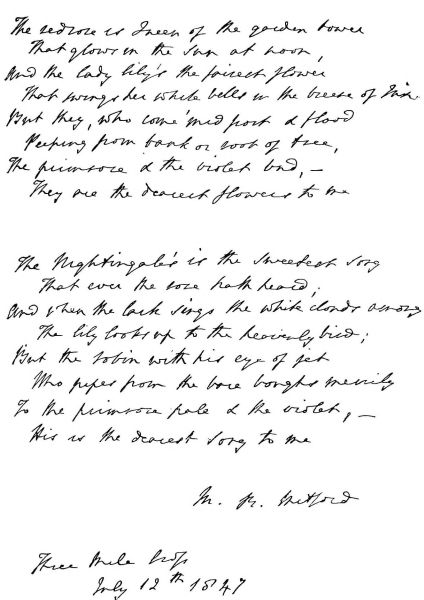 The red rose is Queen of the garden bower
That glows in the sun at noon,
And the lady lily's the fairest flower
That swings her white bells in the breeze of June
But they, who come 'mid frost & flood
Peeping from bank or root of tree,
The primrose & the violet bud, —
They are the dearest flowers to me
The Nightingale's is the sweetest song
That ever the rose hath heard;
And when the lark sings the white clouds among
The lily looks up to the heavenly bird;
But the robin with his eye of jet
Who pipes from the bare boughs merrily
To the primrose pale & the violet, —
His is the dearest song to me
M. R. Mitford
Three Mile Cross
July 12th 1847